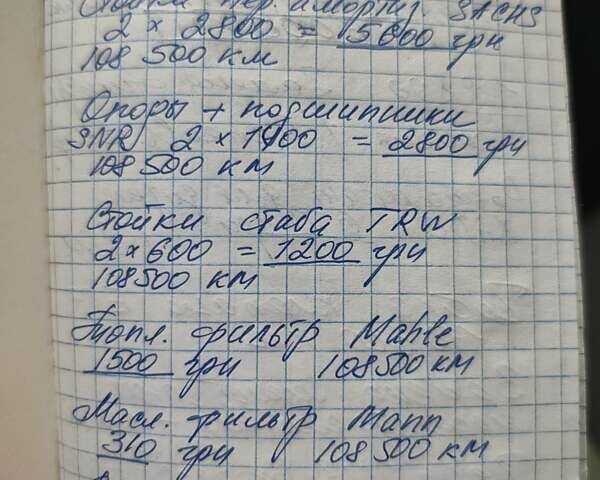 Стойки пер. аморт. SACHS
2 × 2800 = 5600 грн
108 500 км
Опоры + подшипники
SNR 2 × 1400 = 2800 грн
108 500 км
Стойки стаба TRW
2 × 600 = 1200 грн
108500 км
Топл. фильтр Mahle
1500 грн 108500 км
Масл. фильтр Mann
310 грн 108 500 км